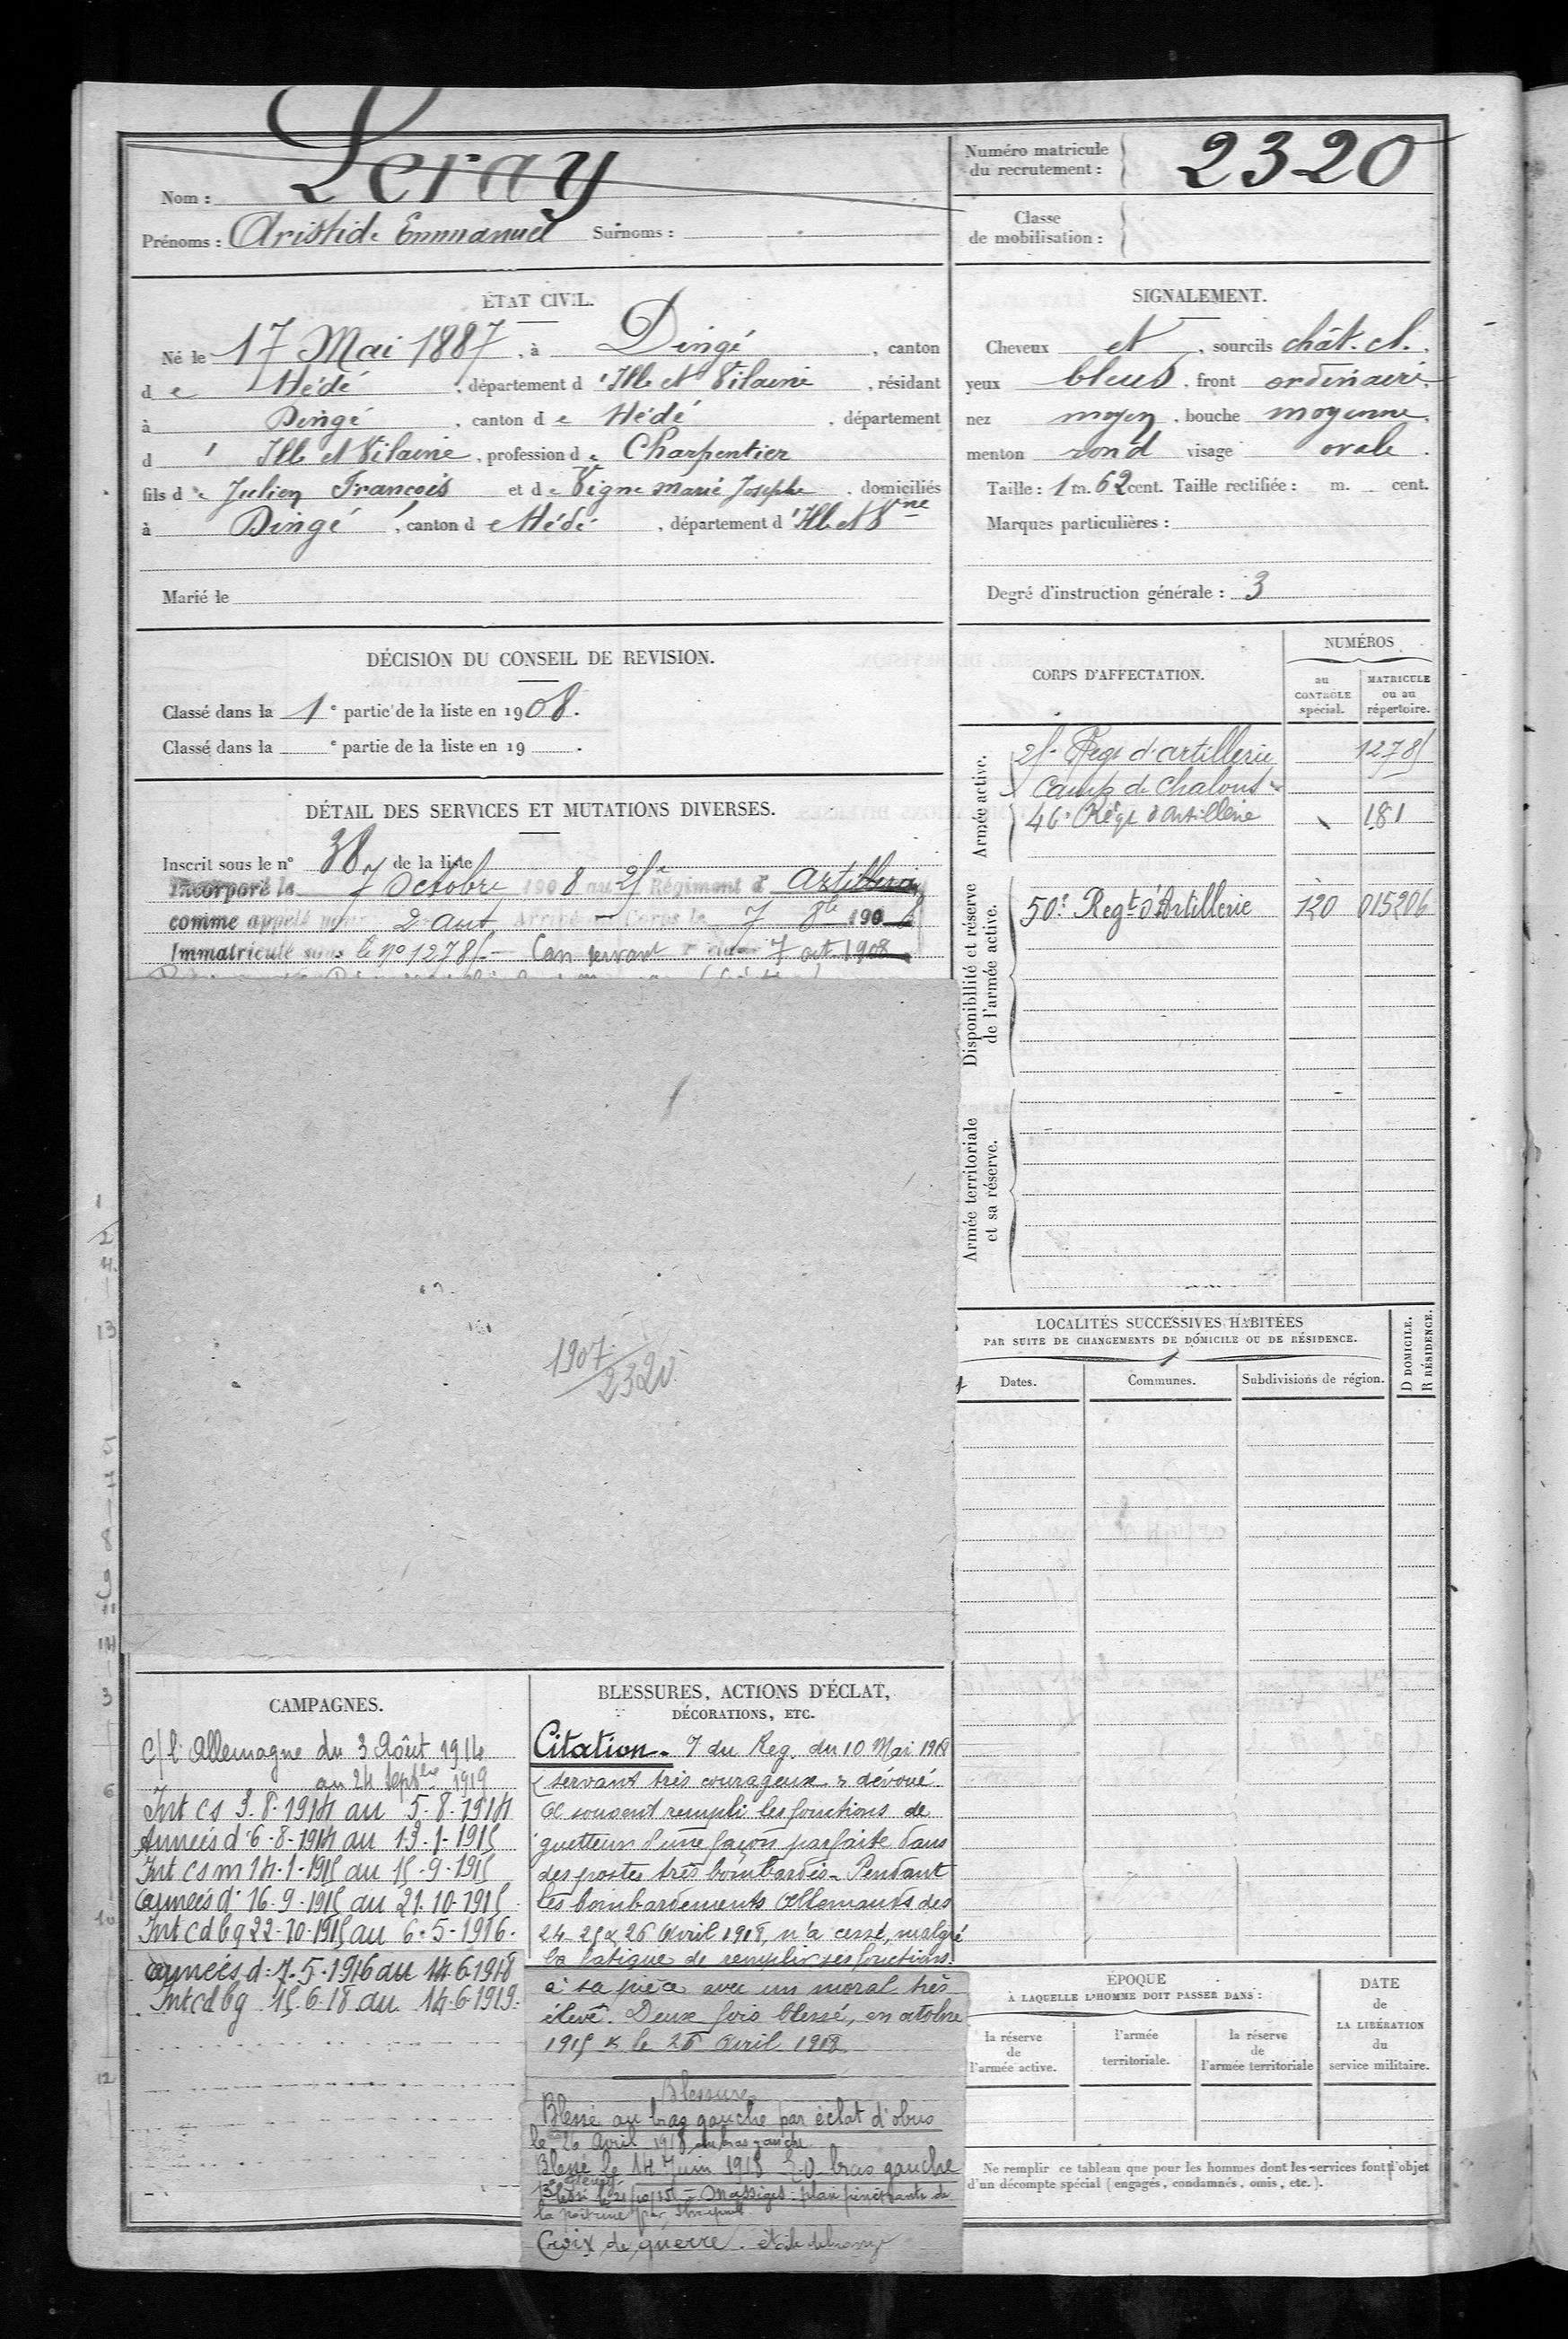 Nom : Leray
Prénoms : Aristide Emmanuel Surnoms :
Numéro matricule
du recrutement : 2320
Classe
de mobilisation :
ÉTAT CIVIL.
Né le 17 Mai 1887, à Dingé, canton
de Hédé, département d'Ille et Vilaine, résidant
à Dingé, canton de Hédé, département
d'Ille et Vilaine, profession de Charpentier
fils de Julien François et de Vigne Marie Josephe, domiciliés
à Dingé, canton de Hédé, département d'Ille et Vne
Marié le
SIGNALEMENT.
Cheveux et, sourcils chât. cl.
yeux bleus, front ordinaire,
nez moyen, bouche moyenne,
menton rond visage ovale.
Taille : 1 m. 62 cent. Taille rectifiée : m. cent.
Marques particulières :
Degré d'instruction générale : 3
DÉCISION DU CONSEIL DE REVISION.
Classé dans la 1e partie de la liste en 1908.
Classé dans la e partie de la liste en 19 .
DÉTAIL DES SERVICES ET MUTATIONS DIVERSES.
Inscrit sous le n° 38 de la liste
Incorporé le 7 Octobre 1908 au 25e Régiment d'Artillerie
comme appelé pour 2 ans Arrivé au Corps le 7 8bre 1908
Immatriculé sous le no 12785 Can servant 7 oct 1908
1907
2320
CORPS D'AFFECTATION.
NUMÉROS
au
CONTRÔLE
spécial.
MATRICULE
ou au
répertoire.
Armée active.
25e Regt d'artillerie 12785
Camp de Chalons
46e Régt d'Artillerie 181
Disponibilité et réserve
de l'armée active.
50e Regt d'Artillerie 120 015206
Armée territoriale
et sa réserve.
LOCALITÉS SUCCESSIVES HABITÉES
PAR SUITE DE CHANGEMENTS DE DOMICILE OU DE RÉSIDENCE.
Dates. Communes. Subdivisions de région.
D DOMICILE.
R RÉSIDENCE.
CAMPAGNES.
C/ l'Allemagne du 3 Août 1914
au 24 Septbre 1919
Int cs 3.8.1914 au 5.8.1914
Armées d. 6-8-1914 au 13-1-1915
Int csm 14-1-1915 au 15-9-1915
armées d. 16-9-1915 au 21-10-1915
Int cd bg 22-10-1915 au 6-5-1916.
armées d. 7.5.1916 au 14.6.1918
Int cd bg 15.6.18 au 14.6.1919.
BLESSURES, ACTIONS D'ÉCLAT,
DÉCORATIONS, ETC.
Citation. 7 du Reg. du 10 Mai 1918
servant très courageux & dévoué
a souvent rempli les fonctions de
guetteur d'une façon parfaite dans
des postes très bombardés. Pendant
les bombardements Allemands des
24-25 & 26 Avril 1918, n'a cessé, malgré
la fatigue de remplir ses fonctions
à sa pièce avec un moral très
élevé. Deux fois blessé, en octobre
1915 & le 26 Avril 1918
Blessures
Blessé au bras gauche par éclat d'obus
le 26 Avril 1918 au bras gauche
Blessé le 14 Juin 1918 E.O bras gauche
Blessé le 21/10/15 - Massiges - plaie pénétrante de
la poitrine par shrapnel
Croix de guerre. étoile de bronze
ÉPOQUE
À LAQUELLE L'HOMME DOIT PASSER DANS :
la réserve
de
l'armée active.
l'armée
territoriale.
la réserve
de
l'armée territoriale
DATE
de
LA LIBÉRATION
du
service militaire.
Ne remplir ce tableau que pour les hommes dont les services font l'objet
d'un décompte spécial (engagés, condamnés, omis, etc.).